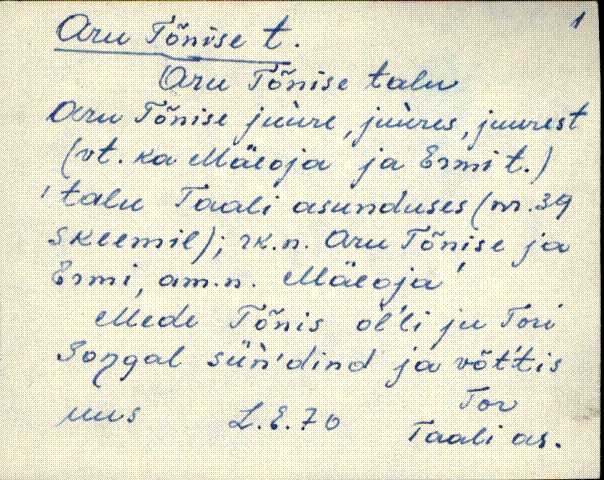 1
Aru Tõnise t.
Aru Tõnise talu
Aru Tõnise juùre, juùres, juurest
(vt. ka Mäeoja ja Ermi t.)
'talu Taali asunduses (nr. 39
skeemil); rk.n. Aru Tõnise ja
Ermi, am.n. Mäeoja'
Mede Tõnis ol'li ju Tori
Songal sün'dind ja võt'tis
L.E.70
Tor
Taali as.